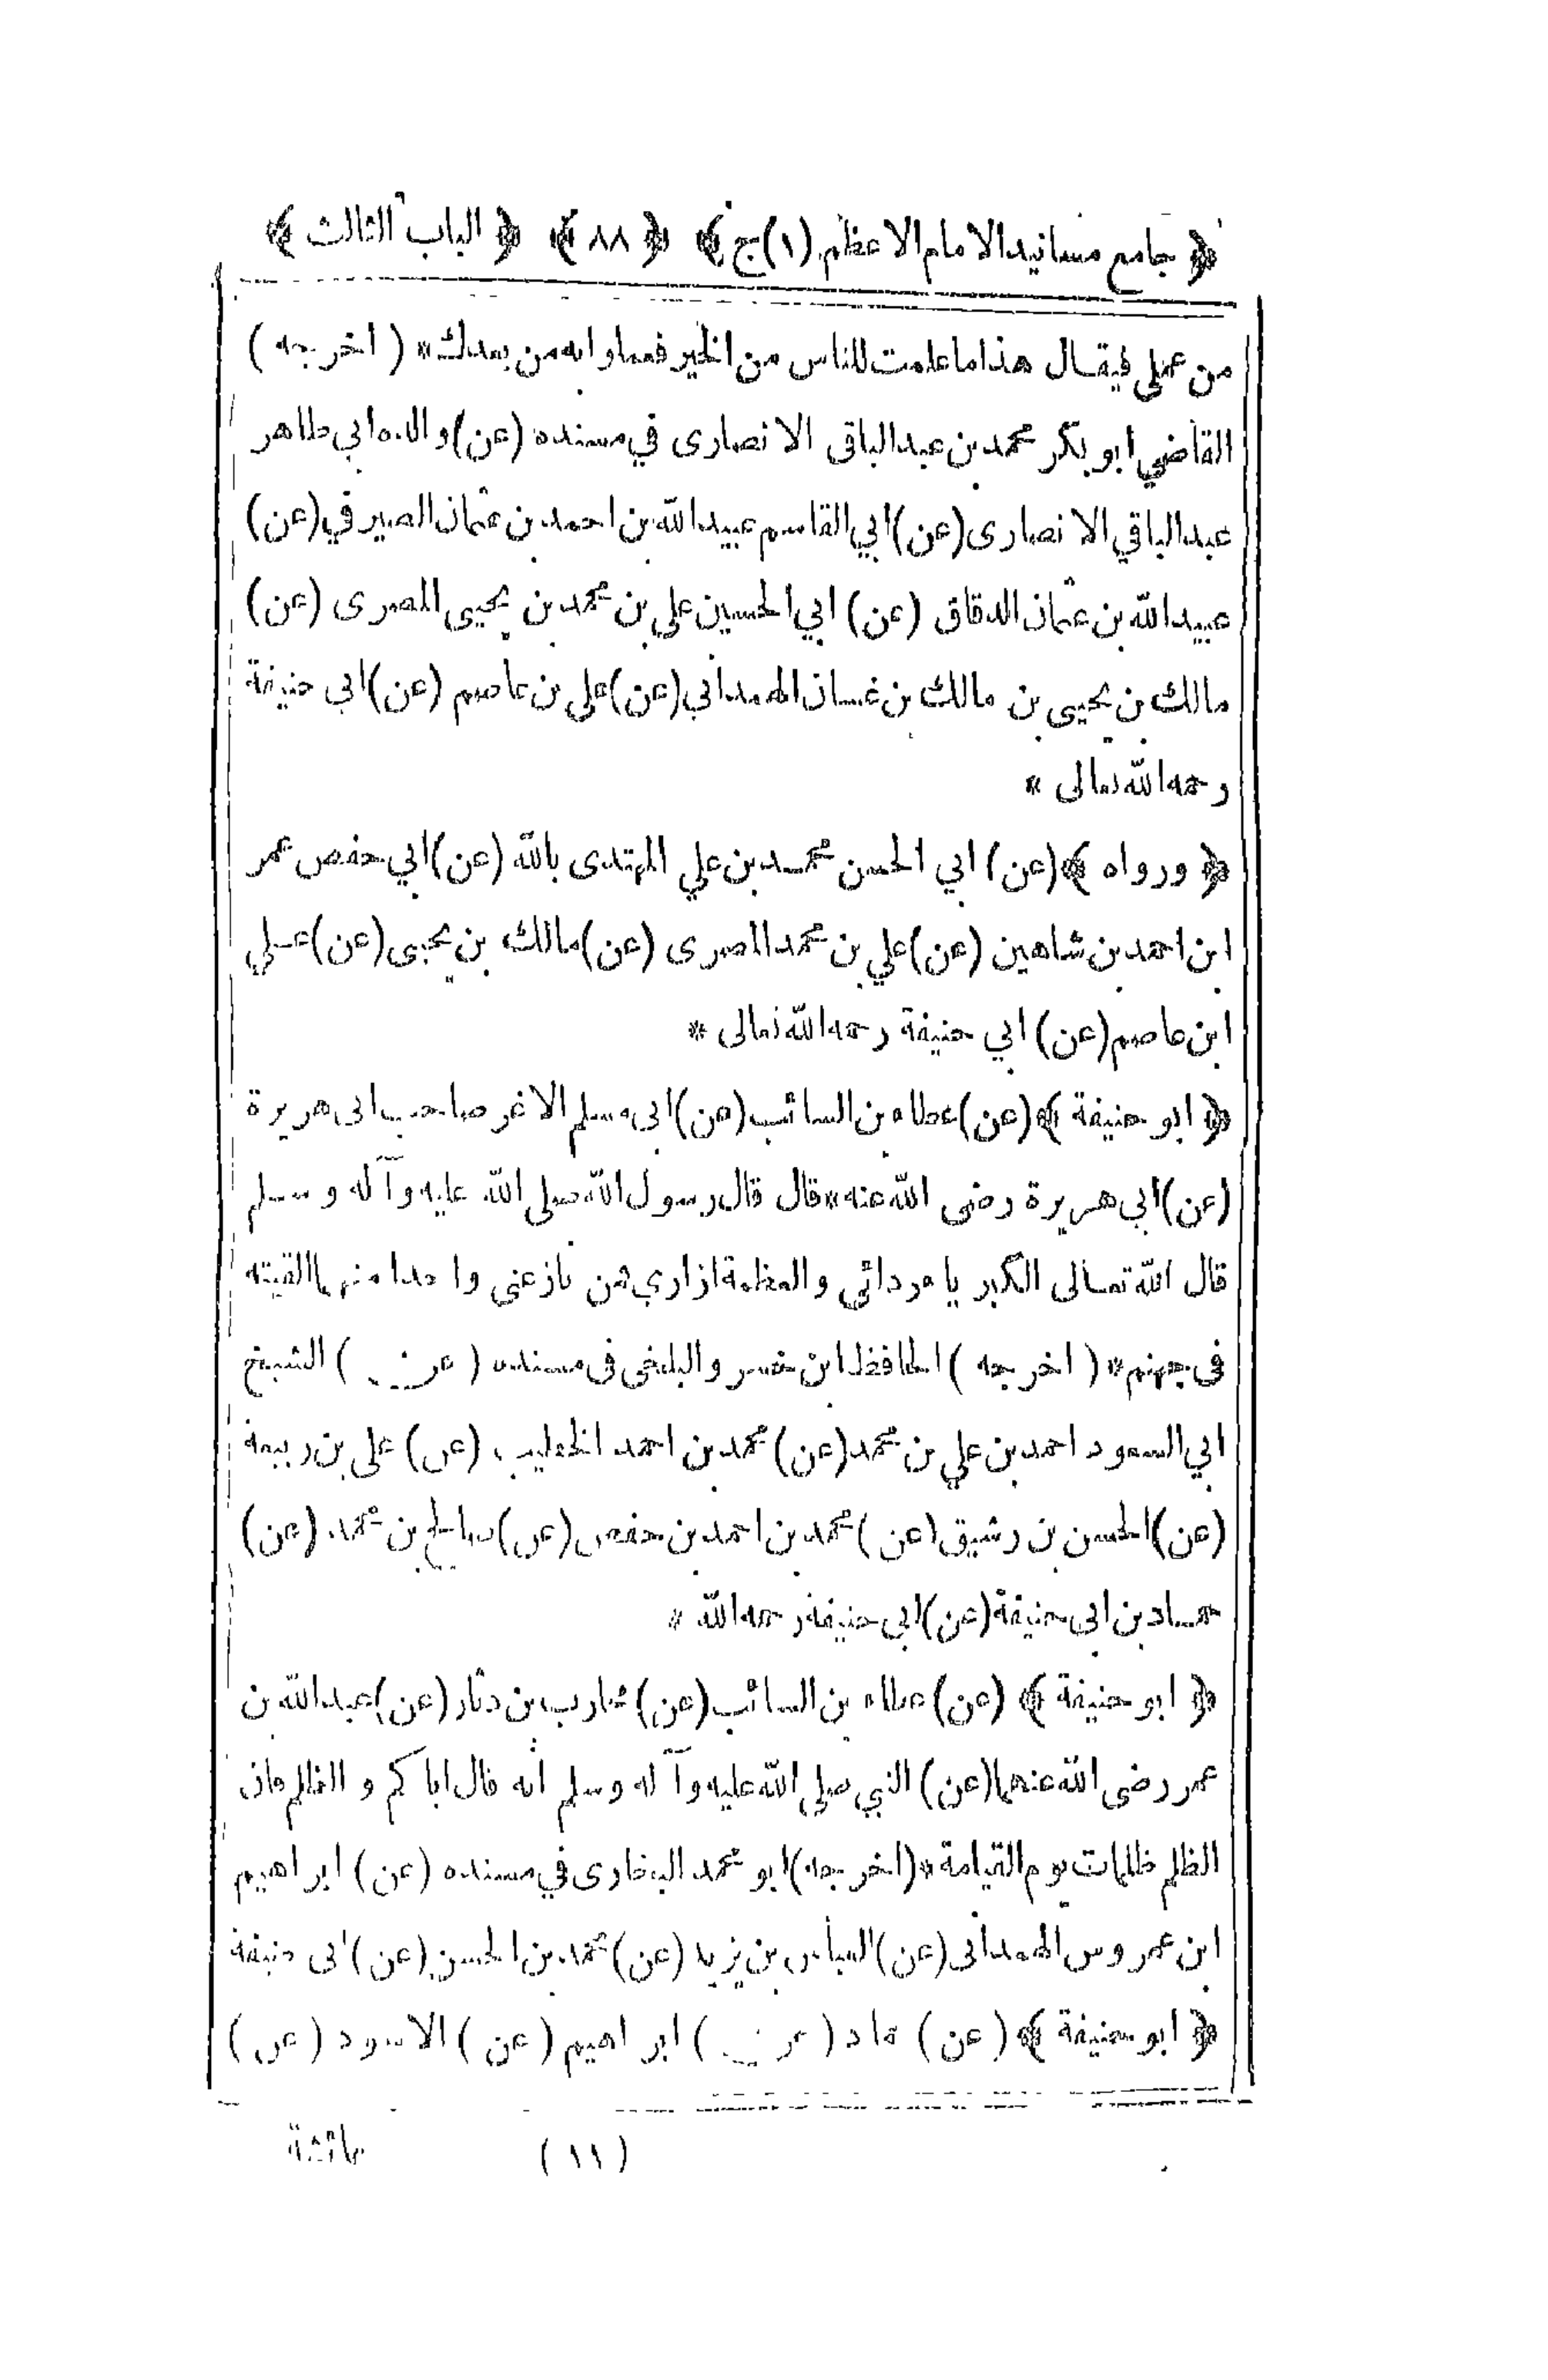 ﴿ جامع مسانيد الامام الاعظم (١) ج ﴾ ﴿ ٨٨ ﴾ ﴿ الباب الثالث ﴾
من عملى فيقال هذا ما علمت للناس من الخير فعملوا به من بعدك * ( اخرجه )
القاضي ابو بكر محمد بن عبد الباقى الانصارى في مسنده (عن) والده ابي طاهر
عبد الباقي الانصارى (عن) ابي القاسم عبيد الله بن احمد بن عثمان الصيرفي (عن)
عبيد الله بن عثمان الدقاق (عن) ابي الحسين علي بن محمد بن يحيى المصرى (عن)
مالك بن يحيى بن مالك بن غسان الهمداني (عن) علي بن عاصم (عن) ابى حنيفة
رحمه الله تعالى *
﴿ ورواه ﴾ (عن) ابي الحسن محمد بن علي المهتدى بالله (عن) ابي حفص عمر
ابن احمد بن شاهين (عن) علي بن محمد المصرى (عن) مالك بن يحيى (عن) علي
ابن عاصم (عن) ابي حنيفة رحمه الله تعالى *
﴿ ابو حنيفة ﴾ (عن) عطاء بن السائب (عن) ابى مسلم الاغر صاحب ابى هريرة
(عن) ابي هريرة رضى الله عنه * قال قال رسول الله صلى الله عليه وآله وسلم
قال الله تعالى الكبرياء ردائي والعظمة ازاري فمن نازعنى واحدا منهما القيته
فى جهنم * ( اخرجه ) الحافظ ابن خسرو البلخى فى مسنده ( عن ) الشيخ
ابي السعود احمد بن علي بن محمد (عن) محمد بن احمد الخطيب (عن) على بن ربيعة
(عن) الحسن بن رشيق (عن) محمد بن احمد بن حفص (عن) صالح بن محمد (عن)
حماد بن ابى حنيفة (عن) ابي حنيفة رحمه الله *
﴿ ابو حنيفة ﴾ (عن) عطاء بن السائب (عن) محارب بن دثار (عن) عبد الله بن
عمر رضى الله عنهما (عن) النبي صلى الله عليه وآله وسلم انه قال اياكم والظلم فان
الظلم ظلمات يوم القيامة * (اخرجه) ابو محمد البخارى في مسنده (عن) ابراهيم
ابن عمروس الهمدانى (عن) العباس بن يزيد (عن) محمد بن الحسن (عن) ابى حنيفة
﴿ ابو حنيفة ﴾ (عن) حماد ( عن ) ابراهيم ( عن ) الاسود (عن)
(١١) عائشة